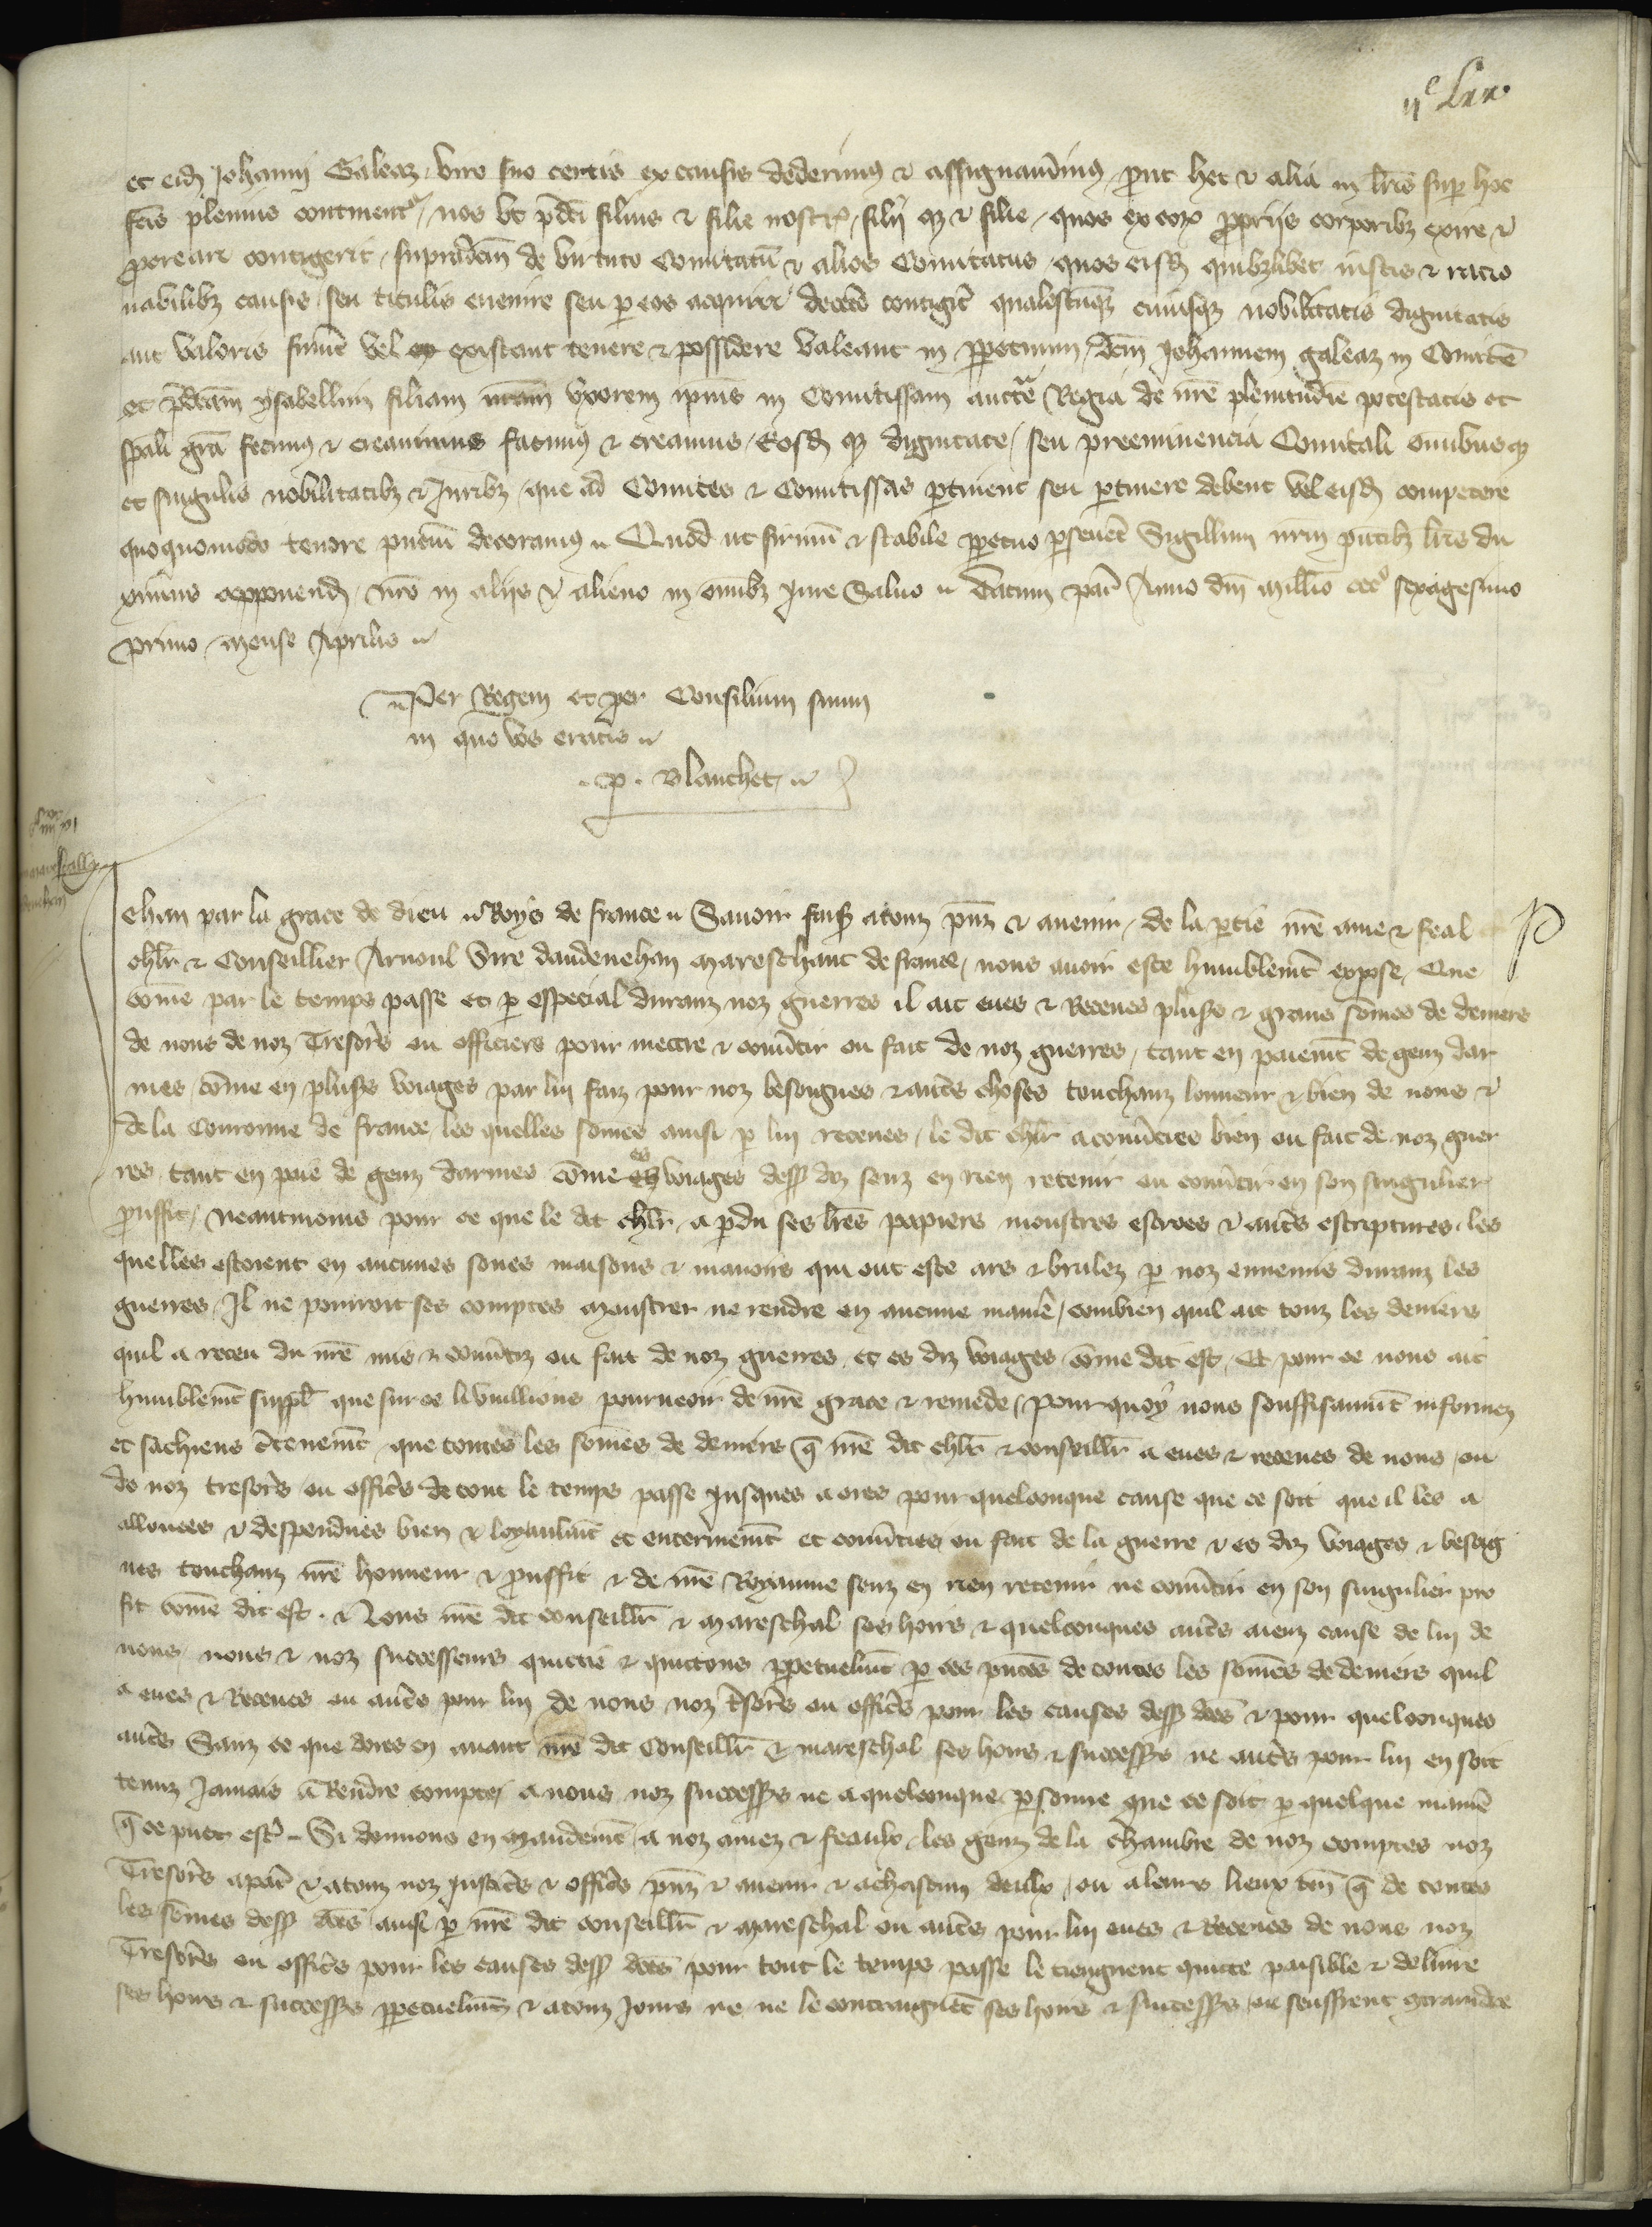 iiᶜ lxx.
et eid(em) Johanni Galeaz viro suo certis ex causis dederimus ⁊ assignaverimus p(ro)ut hec ⁊ alia in lr̃is sup(er) hoc
fc̃is plenius continent(ur) / nos ut p̃dc̃i filius ⁊ filie nostr(i) / filij q(ue) ⁊ filie / quos ex eor(um) p(ro)priis corporib(us) exire ⁊
p(ro)creari contigerit / supradc̃m de Virtuto Comitatũ ⁊ alios Comitatus / quos eisd(em) quib(us)libet iustis ⁊ racio
nabilib(us) causis / seu titulis evenire seu p(er) eos acquiri decet(er)o contig(er)it qualescũq(ue) cuiusq(ue) nobilitatis dignitatis
aut valoris fuerint vel existant tenere ⁊ possidere valeant in p(er)petuum / dc̃m Johannem galeaz in Comitẽ
et p̃dc̃am ysabellim filiam nr̃am uxorem ipius in Comitissam auctẽ Regia de nr̃e plenitudĩe potestatis et
sp̃ali gr̃a fecimus ⁊ creavimus facimus ⁊ creamus / Eosd(em) q(ue) dignitate / seu preeminencia Comitali omnibusq(ue)
et singulis nobilitatib(us) ⁊ Jurib(us) / que ad Comites ⁊ Comitissas p(er)tinent seu p(er)tinere debent vel eisd(em) competere
quoquomodo tenore p̃nciũ decoramus ~ Quod ut firmũ ⁊ stabile p(er)petuo p(er)sev(er)et Sigillum nr̃m p̃ntib(us) lr̃is du
ximus apponend(um) / nr̃o in aliis ⁊ alieno in omib(us) jure Salvo ~ Datum par(isius) Anno dñi millĩo cccº sexagesimo
primo / mense Aprilis ~
~ Per Regem et per Consilium suum
in quo vos eratis ~
.P. Blanchet ~
Jehan par la grace de dieu ~ Roys de france ~ Savoir fais(ons) a touz p̃nz ⁊ avenir / de la p(ar)tie nr̃e ame ⁊ feal
chlr̃ ⁊ Conseillier Arnoul Sire daudenehan Mareschaut de france / nous avoir este humblemẽt expose / Que
cõme par le temps passe et p(ar) especial duranz noz guerres il ait eues ⁊ Receues plus(ieur)s ⁊ grans sõmes de deniers
de nous de noz Tresor(ier)s ou officiers pour mectre ⁊ conv(er)tir ou fait de noz guerres / tant en paiemẽt de genz dar
mes / cõme en plus(ieur)s voiages par lui faiz pour noz besoignes ⁊ aut(re)s choses touchanz lonneur ⁊ bien de nous ⁊
de la Couronne de france / les quelles sõmes ainsi p(ar) lui receues / le dit chlr̃ a conv(er)ties bien ou fait de noz guer
res / tant en paiẽ de genz darmes cõme es voiages dess(us) diz senz en rien retenir ou conv(er)tir en son singulier
p(ro)uffit / neantmoins pour ce que le dit chlr̃ / a p(er)du ses lr̃es papiers monstres escroes ⁊ aut(re)s escriptures / les
quelles estoient en aucunes soues maisons ⁊ manoirs qui ont este ars ⁊ brulez p(ar) noz ennemis duranz les
guerres / Il ne pourroit ses comptes monstrer ne rendre en aucune manie(re) / combien quil ait touz les deniers
quil a receu du nr̃e mis ⁊ conv(er)tiz ou fait de noz guerres et es diz voiages / cõme dit est / Et pour ce nous ait
humblemẽt suppl(ie) que sur ce li vuillions pourveoir de nr̃e grace ⁊ remede / Pour quoy nous souffisaumẽt informez
et sachiens c(er)tenemẽt que toutes les sõmes de deniers q̃ nr̃e dit chlr̃ ⁊ conseillr̃ a eues ⁊ receues de nous / ou
de noz tresor(ier)s / ou offic(ier)s de tout le temps passe jusques a ores pour quelconque cause que ce soit que il les a
allouees ⁊ despendues bien ⁊ loyaulmẽt et entierimẽt et conv(er)ties ou fait de la guerre ⁊ es diz voiages ⁊ besoig
nes touchanz nr̃e honneur ⁊ p(ro)uffit ⁊ de nr̃e Royaume senz en rien retenir ne conv(er)tir en son singulier pro
fit cõme dit est . Nous nr̃e dit conseillr̃ ⁊ Mareschal ses hoirs ⁊ quelconques aut(re)s aienz cause de lui de
nous / nous ⁊ noz successeurs quictie ⁊ quictons p(er)petuelmẽt p(ar) ces p̃ntes de toutes les sõmes de deniers quil
a eues ⁊ Receues ou aut(re)s pour lui de nous noz t(re)sor(ier)s ou offic(ier)s pour les causes dess(us) d(i)c(t)es ⁊ pour quelconques
aut(re)s Sanz ce que dores en avant nr̃e dit Conseillr̃ ⁊ mareschal ses hoirs ⁊ success(eur)s ne aut(re)s pour lui en soit
tenuz Jamais a Rendre compte a nous noz success(eur)s ne a quelconque p(er)sonne que ce soit p(ar) quelque manie(re)
q̃ ce puet est(re) - Si donnons en Mandemẽt / a noz amez ⁊ feaulx / les genz de la chambre de noz comptes noz
Tresor(ier)s a par(is) ⁊ a touz noz justic(ier)s ⁊ offic(ier)s p̃nz ⁊ avenir ⁊ a chascun deulx / ou a leurs lieux ten(ans) q̃ de toutes
les sõmes dess(us) d(i)c(t)es ainsi p(ar) nr̃e dit conseillr̃ ⁊ Mareschal ou aut(re)s pour lui eues ⁊ Receues de nous noz
Tresor(ier)s ou offic(ier)s pour les causes dess(us) d(i)c(t)es pour tout le temps passe le tiengnent quicte paisible ⁊ delivre
ses hoirs ⁊ success(eur)s p(er)petuelmẽt ⁊ a touz jours ne ne le contraignẽt ses hoirs ⁊ success(eur)s ou seuffrent contraindre